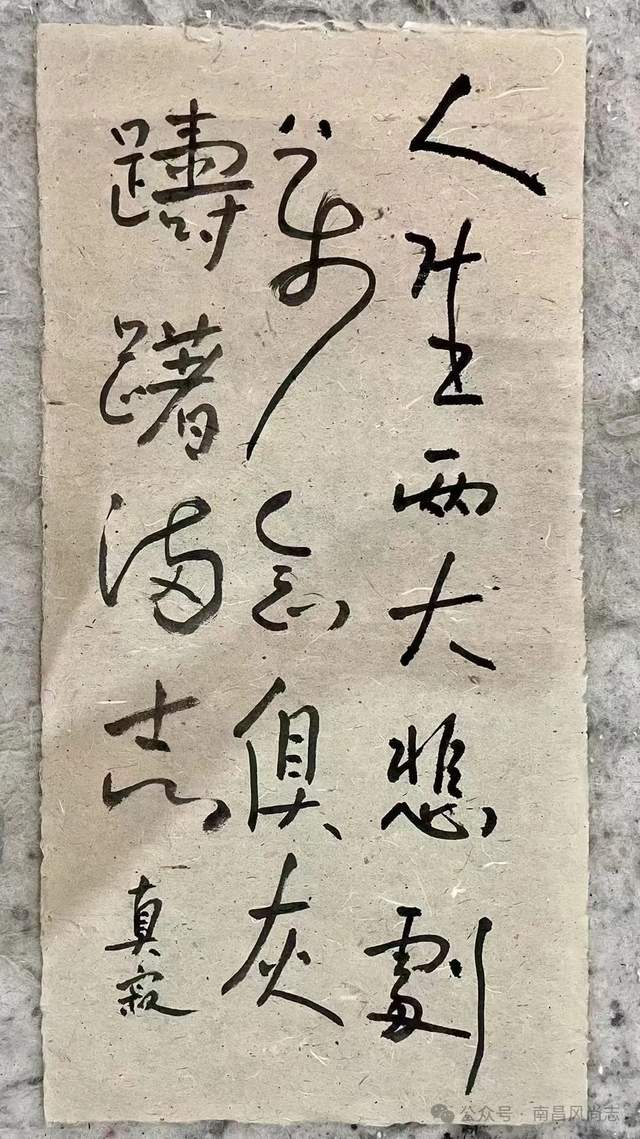 人生两大悲剧
万念俱灰
踌躇满志
真寂
公众号·南昌风尚志